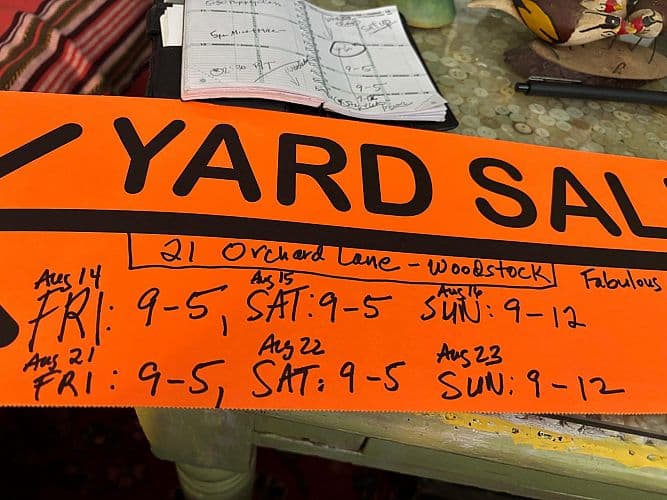 9-5
9-5
YARD SAL
21 Orchard Lane - Woodstock
Fabulous
Aug 14 Aug 15 Aug 16
FRI: 9-5, SAT: 9-5 SUN: 9-12
Aug 21 Aug 22 Aug 23
FRI: 9-5, SAT: 9-5 SUN: 9-12